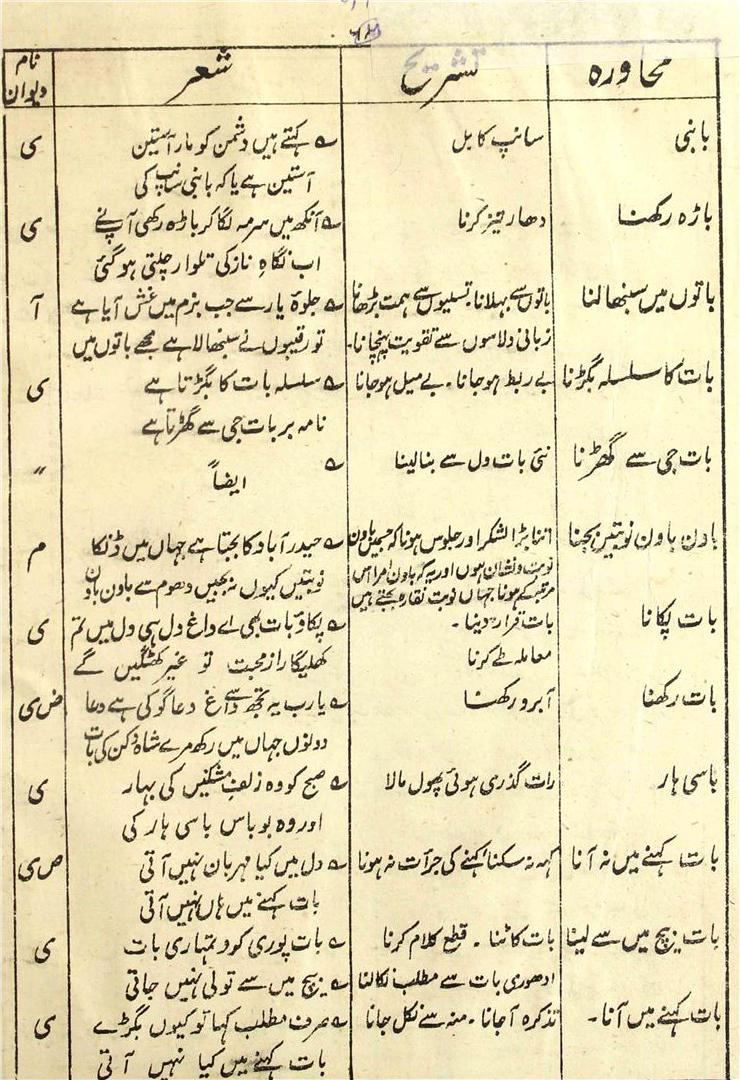 محاورہ تشریح شعر نام دیوان
بانبی سانپ کا بل ؎ کہتے ہیں دشمن کو مار آستین ی
آستین ہے یا کہ بانبی سانپ کی
باڑہ رکھنا دھار تیز کرنا ؎ آنکھ میں سرمہ لگا کر باڑہ رکھی آپنے ی
اب نگاہِ ناز کی تلوار چلتی ہو گئی
باتوں میں سنبھالنا باتوں سے بہلانا تسلیوں سے ہمت بڑھانا ؎ جلوۂ یار سے جب بزم میں غش آیا ہے آ
زبانی دلاسوں سے تقویت پہنچانا۔ تو رقیبوں نے سنبھالا ہے مجھے باتوں میں
بات کا سلسلہ بگڑنا بے ربط ہو جانا۔ بے میل ہو جانا ؎ سلسلہ بات کا بگڑتا ہے ی
نامہ بر بات جی سے گھڑتا ہے
بات جی سے گھڑنا نئی بات دل سے بنا لینا ؎ ایضاً "
باون باون نوبتیں بجنا اتنا بڑا لشکر اور جلوس ہونا کہ جسمیں باون ؎ حیدرآباد کا بجتا ہے جہاں میں ڈنکا م
نوبت و نشان ہوں اور یہ کہ باون امرا اس نوبتیں کیوں نہ بجیں دھوم سے باون باون
مرتبہ کے ہونا جہاں نوبت نقارہ بجتے ہیں
بات پکانا بات قرار دینا۔ ؎ پکاؤ بات بھی اے داغ دل ہی دل میں تم ی
معاملہ طے کرنا کھلیگا راز محبت تو غیر کھٹکیں گے
بات رکھنا آبرو رکھنا ؎ یارب یہ تجھ سے داغ دعا گو کی ہے دعا ض ی
دونوں جہاں میں رکھ مرے شاہ دکن کی بات
باسی ہار رات گذری ہوئی پھول مالا ؎ صبح کو وہ زلفِ مشکیں کی بہار ی
اور وہ بو باس باسی ہار کی
بات کہنے میں نہ آنا کہہ نہ سکنا، کہنے کی جرأت نہ ہونا ؎ دل میں کیا مہربان نہیں آتی ص ی
بات کہنے میں ہاں نہیں آتی
بات بیچ میں سے لینا بات کاٹنا۔ قطع کلام کرنا ؎ بات پوری کرو تمہاری بات ی
ادھوری بات سے مطلب نکالنا ؎ بیچ میں سے تو لی نہیں جاتی
بات کہنے میں آنا۔ تذکرہ آ جانا۔ منہ سے نکل جانا ؎ صرف مطلب کہا تو کیوں بگڑے ی
بات کہنے میں کیا نہیں آتی